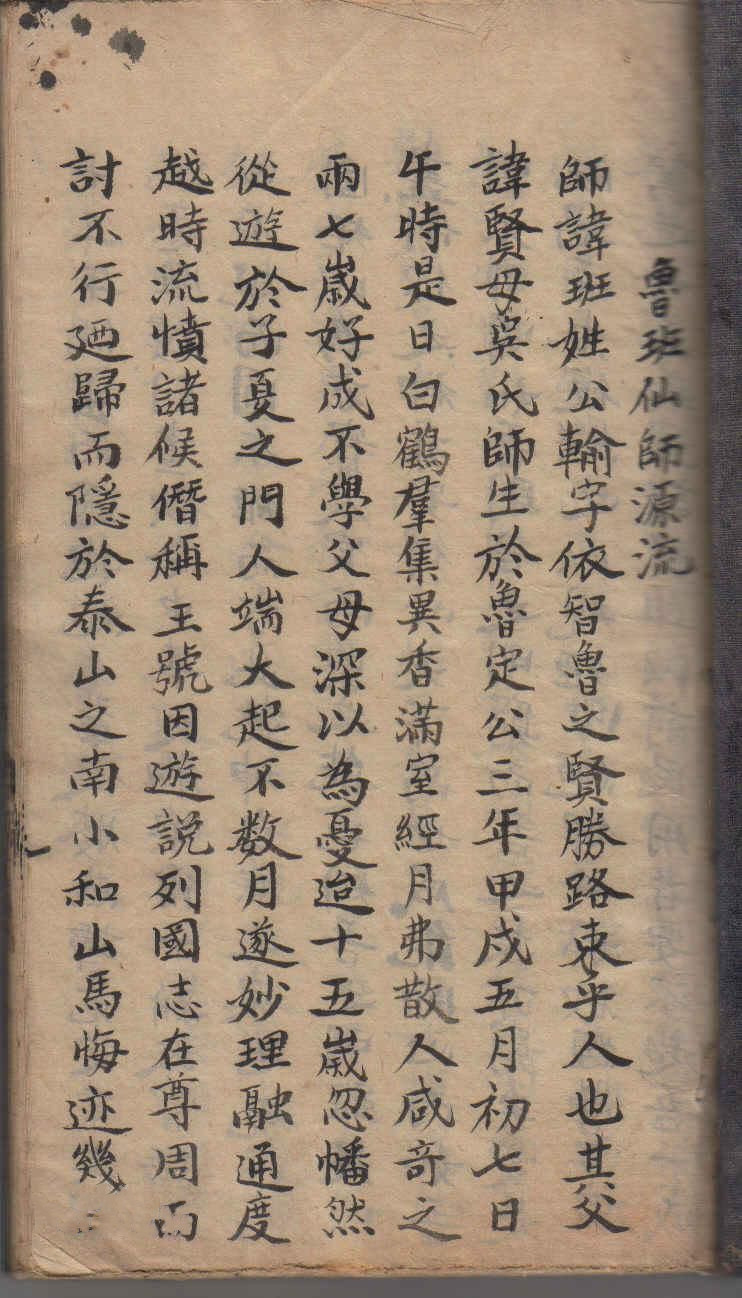 魯班仙師源流
師諱班姓公輸字依智魯之賢勝路東乎人也其父
諱賢母吳氏師生於魯定公三年甲戌五月初七日
午時是日白鶴羣集異香滿室經月弗散人咸竒之
兩七歲好成不學父母深以為憂迨十五歲忽幡然
從遊於子夏之門人端大起不数月遂妙理融通度
越時流憤諸候僭稱王號因遊說列國志在尊周而
討不行廼歸而隱於泰山之南小和山馬悔迹幾